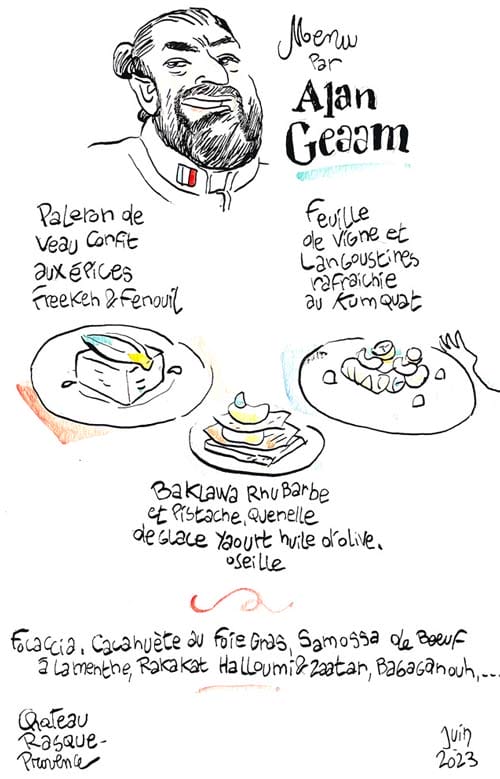 Menu
Par
Alan
Geaam
Paleron de
Veau Confit
aux épices
Freekeh & Fenouil
Feuille
de Vigne et
Langoustines
rafraichie
au Kumquat
Baklawa Rhubarbe
et Pistache, Quenelle
de Glace Yaourt huile d'olive.
oseille
Focaccia, Cacahuète au Foie Gras, Samossa de Boeuf
à la menthe, Rakakat Halloumi & Zaatar, Babaganouh,...
Chateau
Rasque-
Provence
Juin
2023